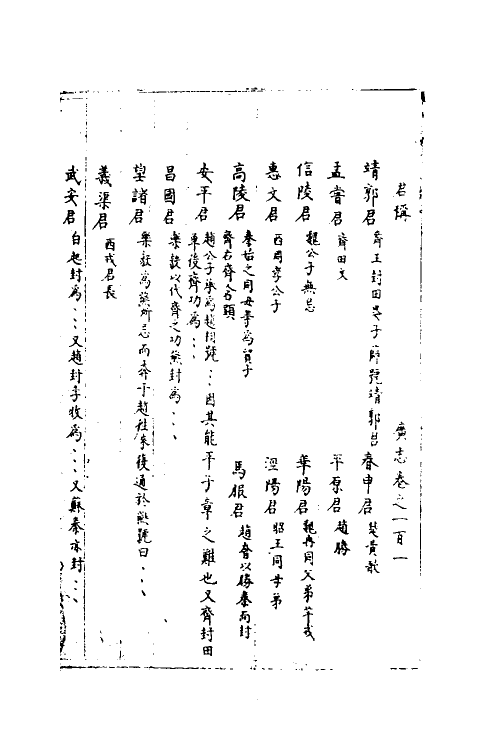 君稱 廣志卷之一百一
靖郭君 齊王封田嬰于薛號靖郭君 春申君 楚黃歇
孟嘗君 齊田文 平原君 趙勝
信陵君 魏公子無忌 華陽君 魏冉同父弟芊戎
惠文君 西周 公子 涇陽君 昭王同母弟
高陵君 秦 之同母弟為質子 齊右齊名顯 馬服君 趙奢以勝秦而封
安平君 趙公子 為趙相號、、因其能平子章之難也又齊封田單復齊功為、、
昌國君 樂毅以伐齊之功燕封為、、、
望諸君 樂毅為燕所忌而奔于趙 後通於燕號曰、、、
義渠君 西戎君長
武安君 白起封為、、、又趙封李牧為、、、又蘇秦亦封、、、